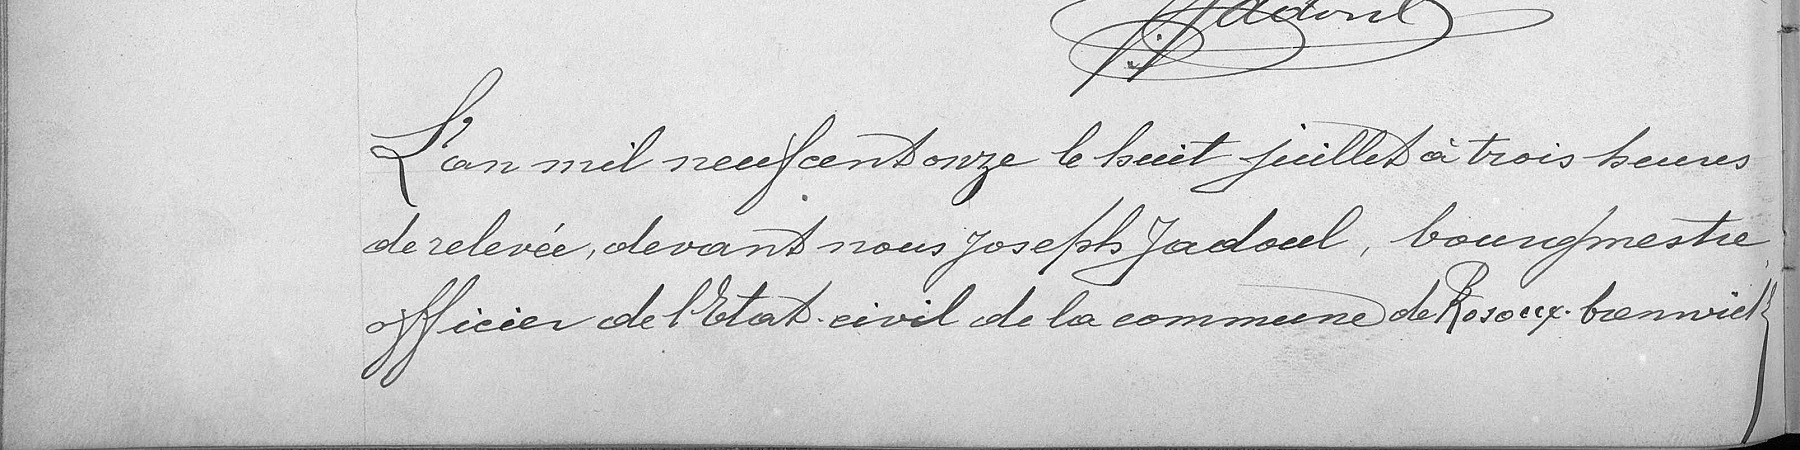 J. Jadoul
L'an mil neuf cent onze le huit juillet à trois heures
de relevée, devant nous Joseph Jadoul, bourgmestre,
officier de l'Etat-civil de la commune de Rosoux-Crenwick